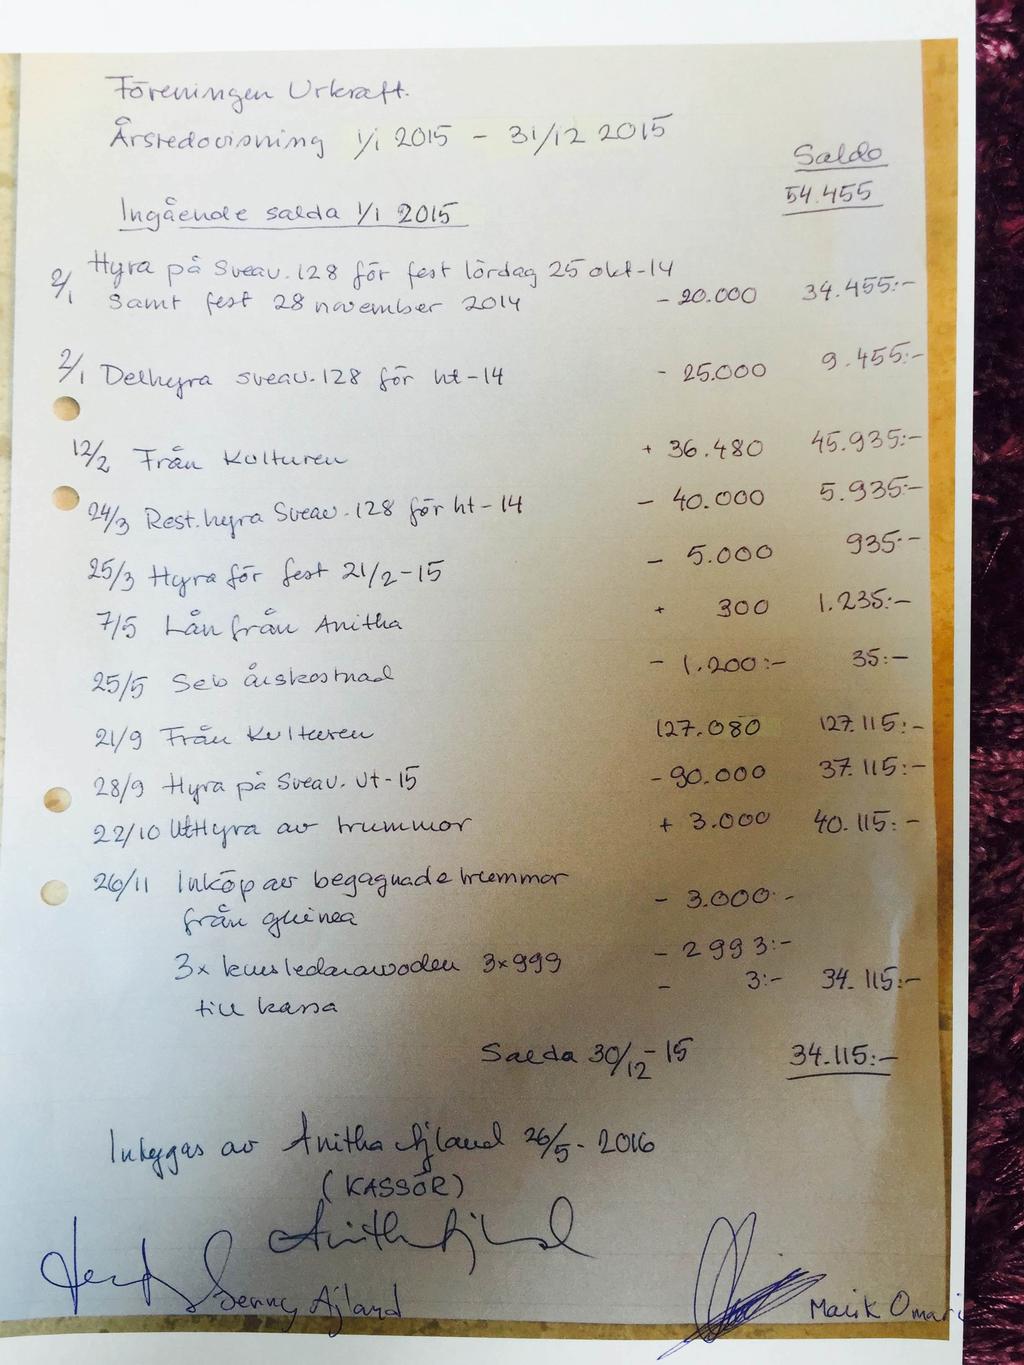 Föreningen Urkraft.
Årsredovisning 1/1 2015 - 31/12 2015
Saldo
54.455
Ingående salda 1/1 2015
2/1 Hyra på Sveav. 128 för fest lördag 25 okt-14
samt fest 28 november 2014 - 20.000 34.455:-
2/1 Delhyra sveav. 128 för ht-14 - 25.000 9.455:-
12/2 Från Kulturen + 36.480 45.935:-
24/3 Rest.hyra Sveav. 128 för ht-14 - 40.000 5.935:-
25/3 Hyra för fest 21/2-15 - 5.000 935:-
7/5 Lån från Anitha + 300 1.235:-
25/5 Seb årskostnad - 1.200:- 35:-
21/9 Från Kulturen 127.080 127.115:-
28/9 Hyra på Sveav. vt-15 - 90.000 37.115:-
22/10 UtHyra av trummor + 3.000 40.115:-
26/11 Inköp av begagnade trummor
från guinea - 3.000:-
3x kursledararvoden 3x999 - 2993:-
till kassa - 3:- 34.115:-
Salda 30/12-15 34.115:-
Intygas av Anitha Ajland 26/5-2016
(KASSÖR)
Anitha Ajland
Jenny Ajland
Malik Omari